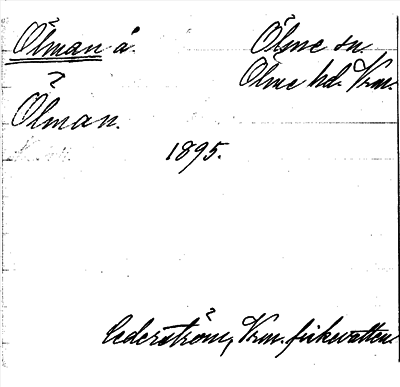 Ölman å. Ölme sn.
Ölme hd. Vrm.
Ölman.
1895.
Cederström, Vrm. fiskevatten.